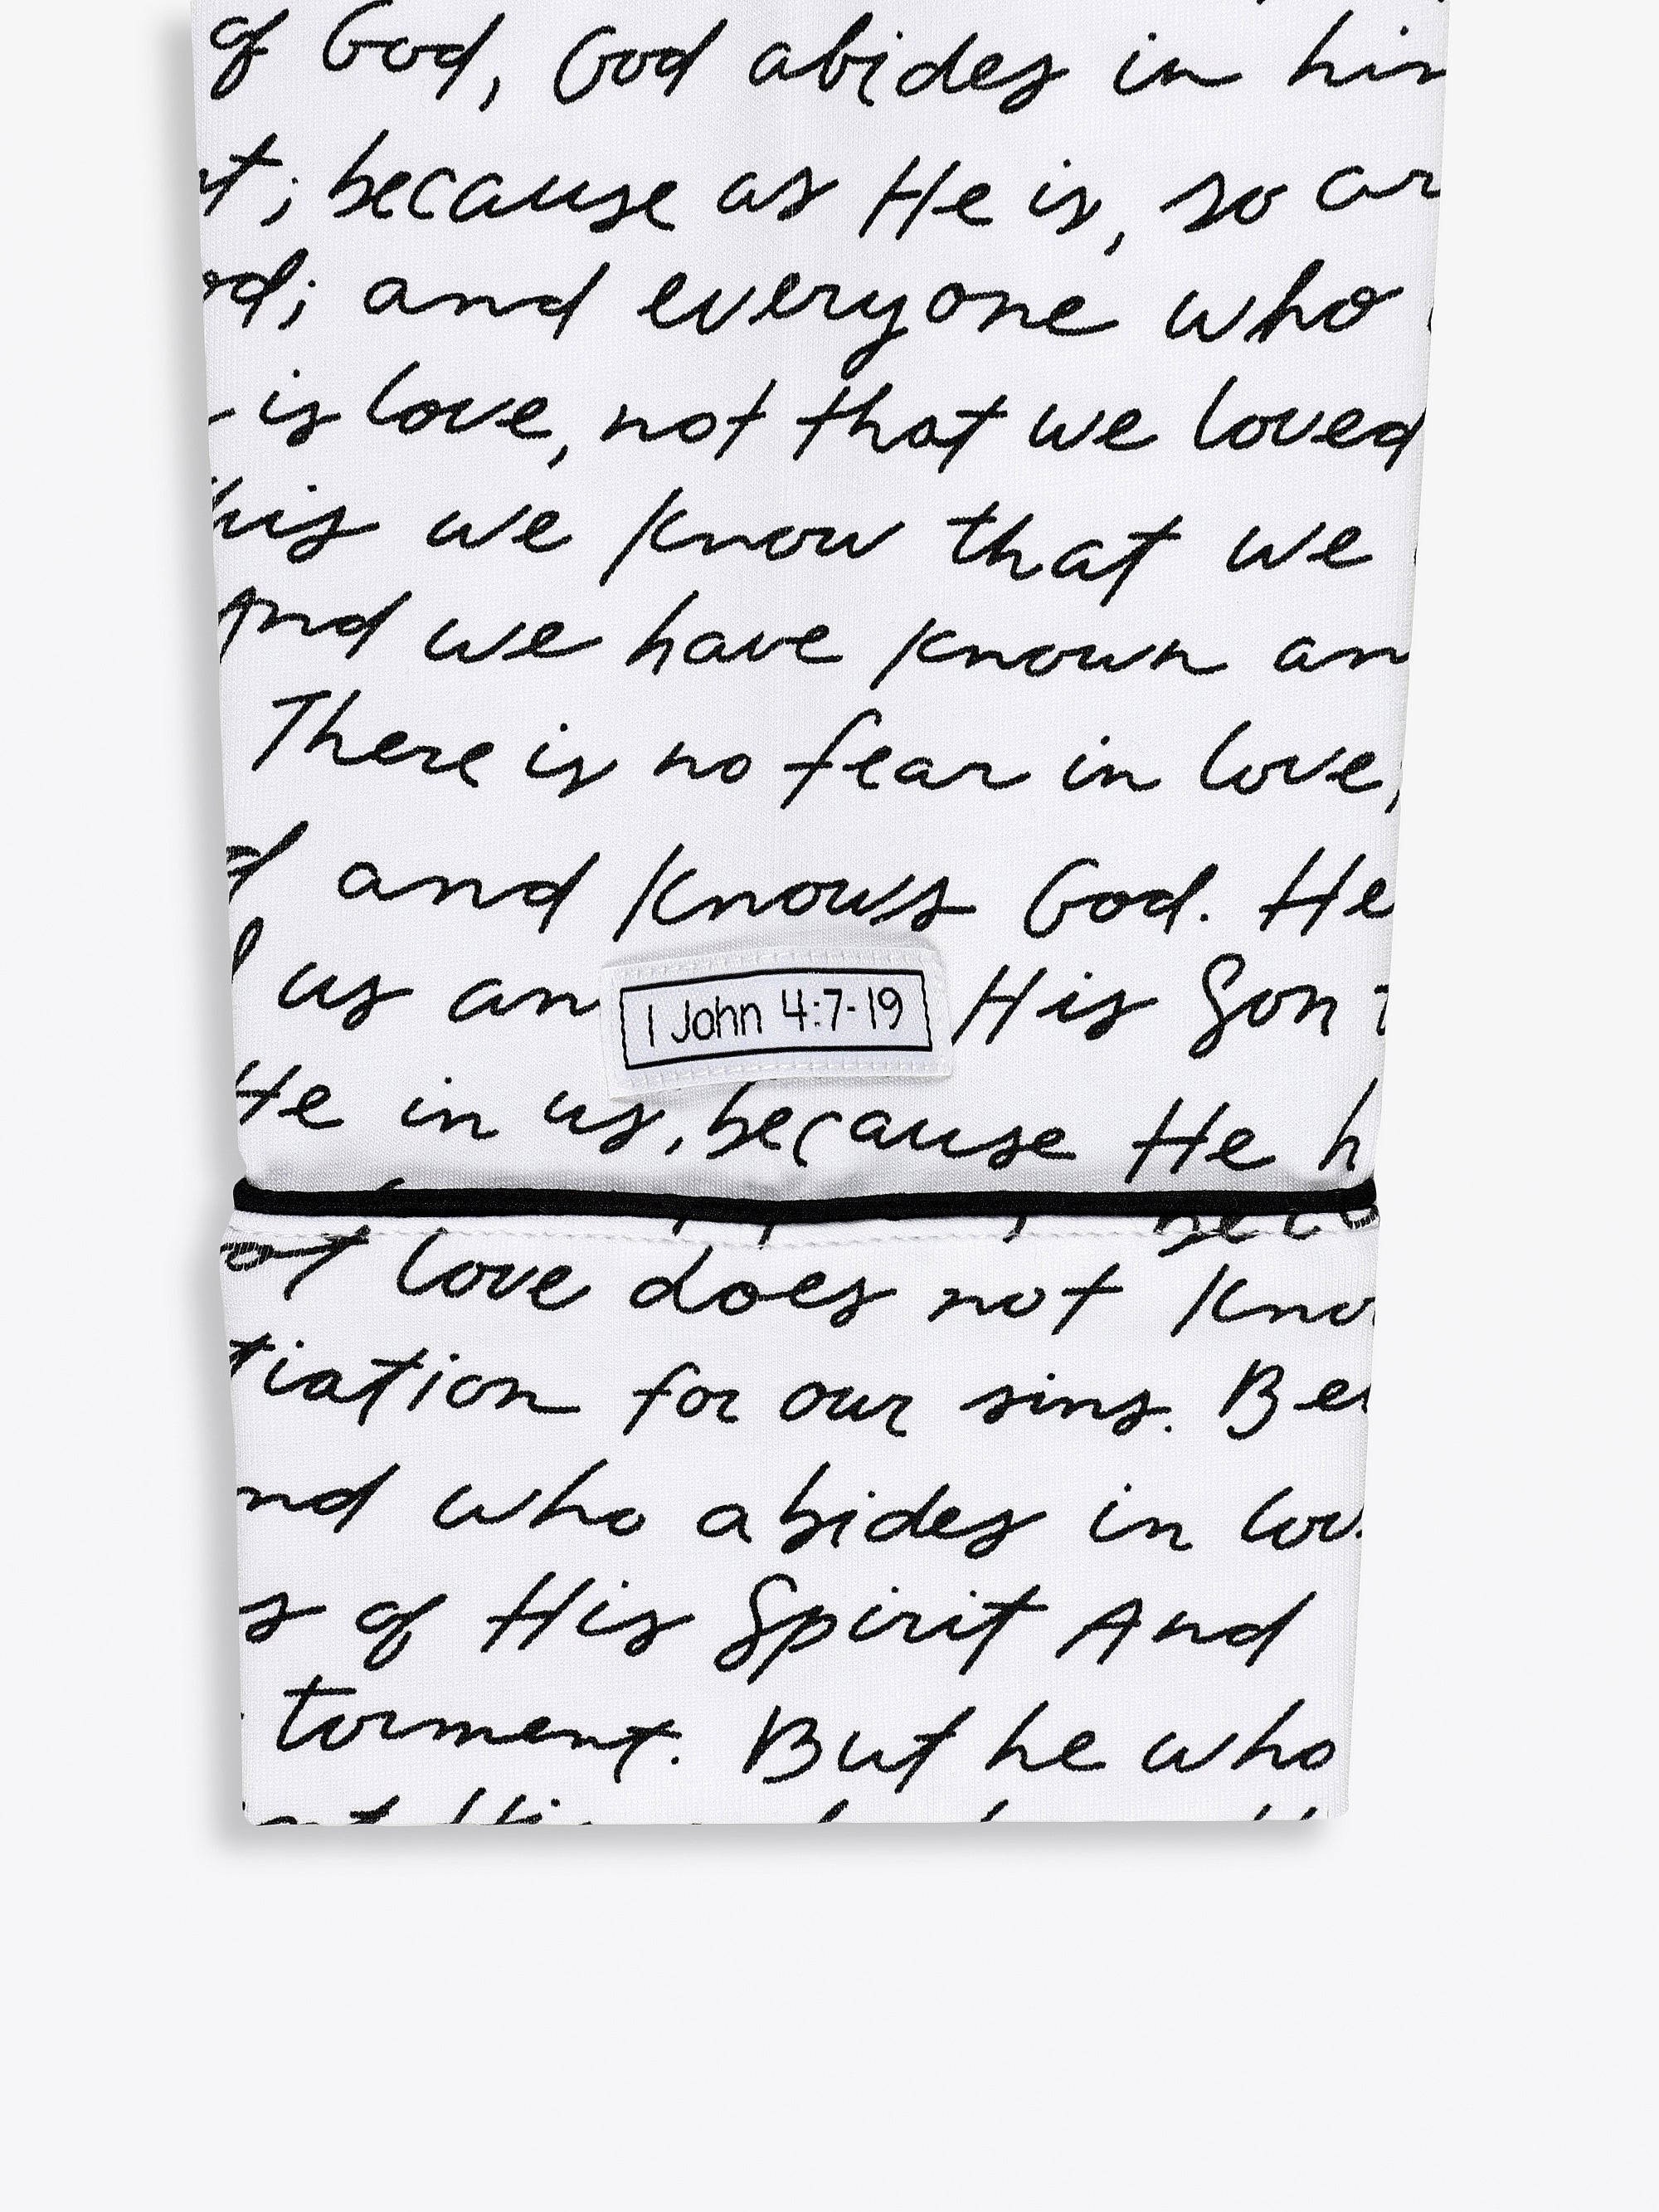 of God, God abides in him
; because as He is, so ar
od; and everyone who
is love, not that we loved
his we know that we
And we have known an
There is no fear in love,
d and knows God. He
us an His Son t
1 John 4:7-19
He in us, because He h
ot love does not kno
tiation for our sins. Be
nd who abides in lov
s of His Spirit And
torment. But he who